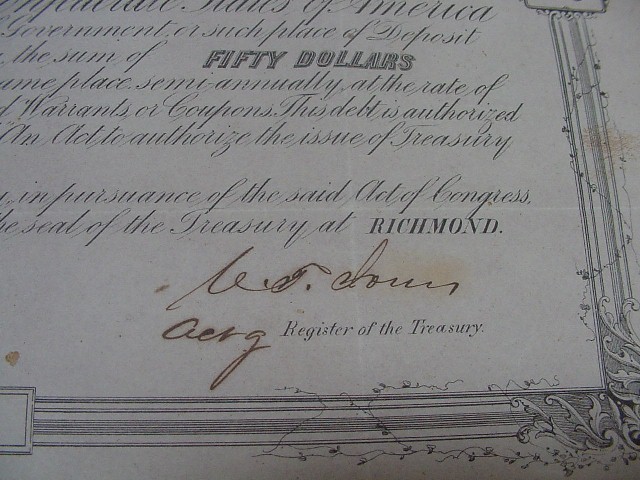 nfederate States of America
Government, or such place of Deposit
the sum of FIFTY DOLLARS
ame place, semi-annually, at the rate of
d Warrants, or Coupons. This debt is authorized
An Act to authorize the issue of Treasury
in pursuance of the said Act of Congress,
he seal of the Treasury at RICHMOND.
Actg Register of the Treasury.